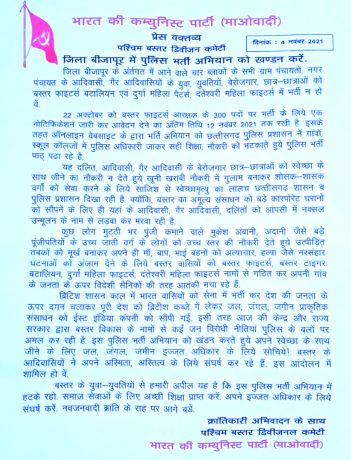 भारत की कम्युनिस्ट पार्टी (माओवादी)
प्रेस वक्तव्य
पश्चिम बस्तर डिवीजन कमेटी
दिनांक : 4 नवम्बर 2021
जिला बीजापूर में पुलिस भर्ती अभियान को खण्डन करें.
जिला बीजापूर के अंतर्गत में आने वाले चार ब्लाकों के सभी ग्राम पंचायतों, नगर
पंचायत के आदिवासी, गैर आदिवासियों के युवा, युवतियों, बेरोजगार छात्र–छात्राओं को
बस्तर फाइटर्स बटालियन एवं दुर्गा महिला पेटर्स, दंतेश्वरी महिला फाइटर्स में भर्ती न हो
वें.
22 अक्टोबर को बस्तर फाइटर्स आरक्षक के 300 पदों पर भर्ती के लिये एक
नोटिफिकेशन जारी कर आवेदन देने का अंतिम तिथि 12 नवंबर 2021 तक रखी है इसके
तहत ऑनलाइन वेबसाइट के द्वारा भर्ति अभियान को छत्तीसगढ़ पुलिस प्रशासन नें गांवों,
स्कूल कॉलजों में पुलिस अधिकारी जाकर सही शिक्षा, नौकरी को भटकाते हुये पुलिस भर्ती
पाठ् पढ़ा रहे है.
यह दलित, आदिवासी, गैर आदिवासी के बेरोजगार छात्र–छात्राओं को स्वेच्छा के
साथ जीने का नौकरी न देते हुये खूनी खराबी नौकरी में गुलाम बनाकर शोसक–शासक
वर्गों को सेवा करने के लिये साजिश से स्वेच्छामृत्यु का लालच छत्तीसगढ़ शासन व
पुलिस प्रशासन दिखा रही है. क्योंकि, बस्तर का अमुल्य संसाधन को बड़े कारपोरेट घरानों
को सौंपने के लिए ही यहां के आदिवासी, गैर आदिवासी, दलितों को आपसी में नक्सल
उन्मूलन के नाम से लडवा कर मरवा रही है.
कुछ लोग मुट्ठी भर पुंजी कमाने वाले मुकेश अंबानी, अदानी जैसे बड़े
पूंजीपतियों के उच्च जाती वर्ग के लोगों को उच्च स्तर की नौकरी देते हुये उत्पीडित
तबकों को मूर्ख बनाकर अपने ही मॉं, बाप, भाई बहनों को अत्याचार, हत्या जैसे नरसंहार
घटनाओं को अंजाम देने के लिये बस्तर वासियों को बस्तर फाइटर्स, बस्तर टाइगर
बटालियन, दुर्गा महिला फाइटर्स, दंतेश्वरी महिला फाइटर्स नामों से गठित कर अपनी गांव
के जनता के ऊपर विदेशी सैनिकों की तरह आतंकी मचा रहे हैं.
ब्रिटिश शासन काल में भारत वासियों को सेना में भर्ती कर देश की जनता के
ऊपर दमन चलाकर पूरी देश को ब्रिटिश कब्जे में लेकर जल, जंगल, जमीन प्राकृतिक
संसाधन को ईस्ट इंडिया कंपनी को सौंपी गई. इसी तरह आज की केन्द्र और राज्य
सरकार द्वारा बस्तर विकास के नामों से कई जन विरोधी नीतियां पुलिस के बलों पर
अमल कर रही है. इस पुलिस भर्ती अभियान को खंडन करते हुये अपने स्वेच्छा के साथ
जीने के लिए जल, जंगल, जमीन इज्जत अधिकार के लिये सोचिये! बस्तर के
आदिवासियों ने अपने अस्मिता, अस्तित्व के लिये संघर्ष कर रहे हैं. इस आन्दोलन में
शामिल हो वें.
बस्तर के युवा–युवतियों से हमारी अपील यह है कि इस पुलिस भर्ती अभियान में
हटके रहो. समाज सेवाओं के लिए अच्छी शिक्षा प्राप्त करें. अपने इज्जत अधिकार के लिये
संघर्ष करें. नवजनवादी क्रांति के राह पर आगे बडें.
क्रांतिकारी अभिवादन के साथ
पश्चिम बस्तर डिवीजनल कमेटी
भारत की कम्युनिस्ट पार्टी (माओवादी)